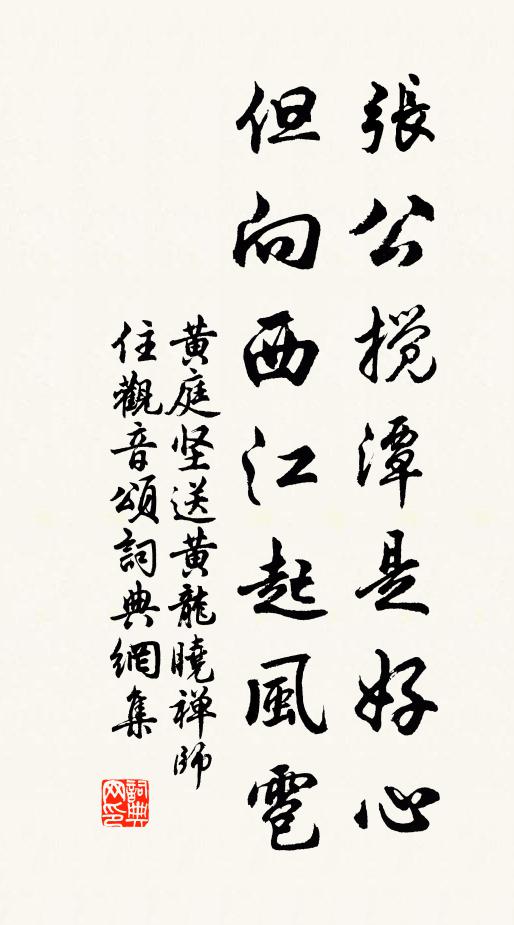 張公攪潭是好心
但向西江起風雹
黄庭坚送黄龍曉禅師
住觀音頌詞典網集
詞典网印